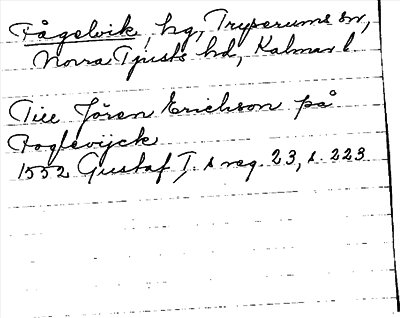 Fågelvik, hg, Tryserums sn,
Norra Tjusts hd, Kalmar l.
Till Jören Erichson på
Foglevijck
1552 Gustaf I:s reg. 23, s. 223